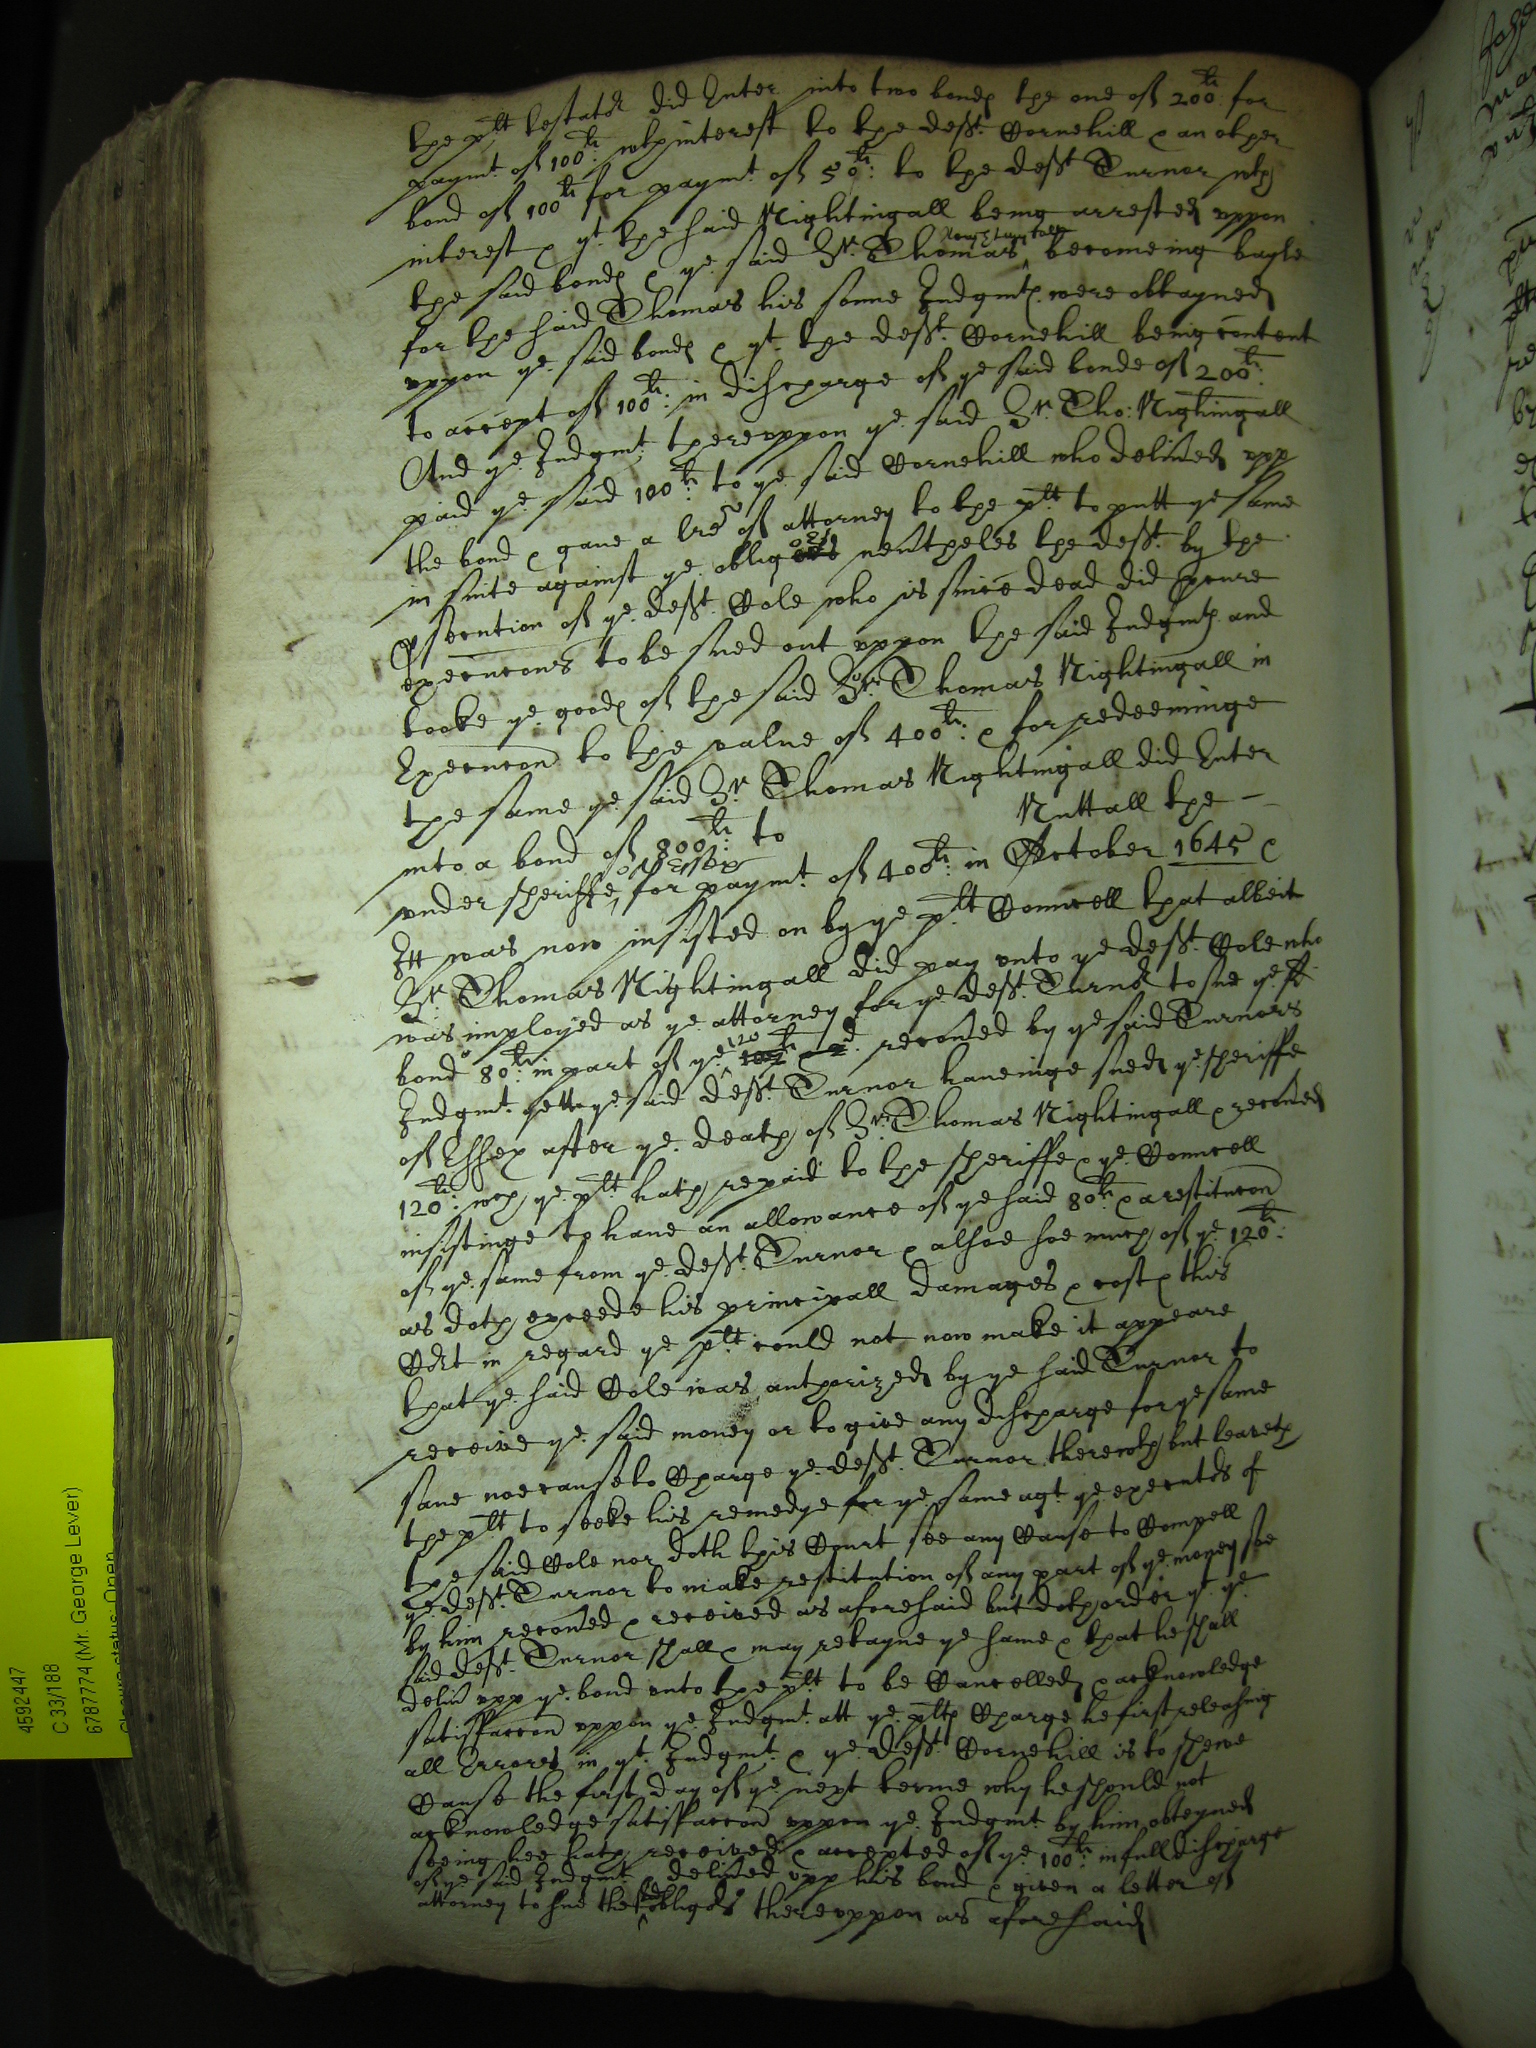 the plt testator did Enter into two bondes the one of 200li: for
paymt. of 100li: wth interest to the deft. Cornehill & an other
bond of 100li for paymt. of 50li: to the deft Turnor wth
interest & yt. the said Nightingall being arrested uppon
the said bondes & ye. said Sr. Thomas Nightingall becomeing bayle
for the said Thomas his sonne Judgmts. were obteyned
uppon ye. said bondes & yt. the deft. Cornehill being content
to accept of 100li: in discharge of ye said bonde of 200li:
And ye. Judgmt: thereuppon ye. said Sr. Tho: Nightingall
paid ye. said 100li: to ye. said Cornehill who delived upp
the bond & gave a lre of attorney to the plt to putt ye same
in suite against ye. obligors nevtheles the deft. by the
psecution of ye. deft. Cole who is since dead did pcure
execucons to be sued out uppon the said Judgmts and
tooke ye. goodes of the said Sr. Thomas Nightingall in
Execucon to the value of 400li: & for redeeminge
the same ye. said Sr. Thomas Nightingall did Enter
into a bond of 800li: to Nuttall the
under sheriffe of Essex for paymt. of 400li: in October 1645 &
Itt was now insisted on by ye plt Councell that albeit
Sr. Thomas Nightingall did pay unto ye deft. Cole who
was imployed as ye attorney for ye. deft. Turnor to sue ye. sd
bond 80li: in part of ye. 120li recoved by ye said Turnors
Judgmt. yett ye said deft. Turnor haveinge sued ye. sheriffe
of Essex after ye. death of Sr. Thomas Nightingall & recoved
120li: wch ye. plt hath repaid to the sheriffe & ye. Councell
insistinge to have an allowance of ye said 80li & a restitucon
of ye. same from ye. deft. Turnor & alsoe soe much of ye. 120li:
as doth exceede his principall damages & costes this
Cort in regard ye plt could not now make it appeare
that ye. said Cole was authorized by ye said Turnor to
receive ye. said money or to give any discharge for ye same
saw noe cause to Charge ye. deft. Turnor therewth but leaveth
the plt to seeke his remedye for ye. same agt. ye executors of
the said Cole nor doth this Court see any Cause to Compell
ye. deft. Turnor to make restitution of any part of ye. money soe
by him recoved & received as aforesaid but doth order yt. ye.
said deft. Turnor shall & may retayne ye same & that he shall
deliv upp ye. bond unto the plt to be Cancelled & acknowledge
satisfaccon uppon ye. Judgmt. att ye. pltes Charge he first releaseing
all Errores in yt. Judgmt. & ye. deft. Cornehill is to shewe
Cause the first day of ye next terme why he should not
acknowledge satisfaccon uppon ye. Judgmt by him obteyned
seeing hee hath received & accepted of ye. 100li: in full discharge
of ye. said Judgmt & delived upp this bond & given a letter of
attorney to sue the obligors thereuppon as aforesaid
4592447
C 33/188
6787774 (Mr. George Lever)
Closure status: Open